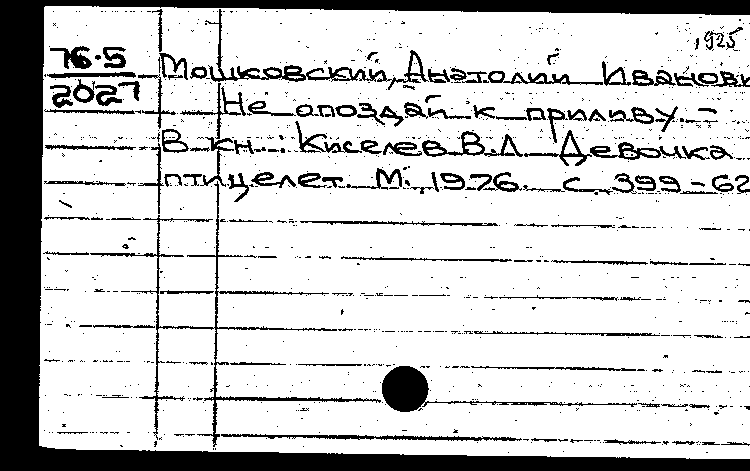 1925
76.5
2027
Мошковский, Анатолий Иванови
Не опоздай к приливу. –
В кн.: Киселев В.Л. Девочка
птицелет. М., 1976. с. 399–62